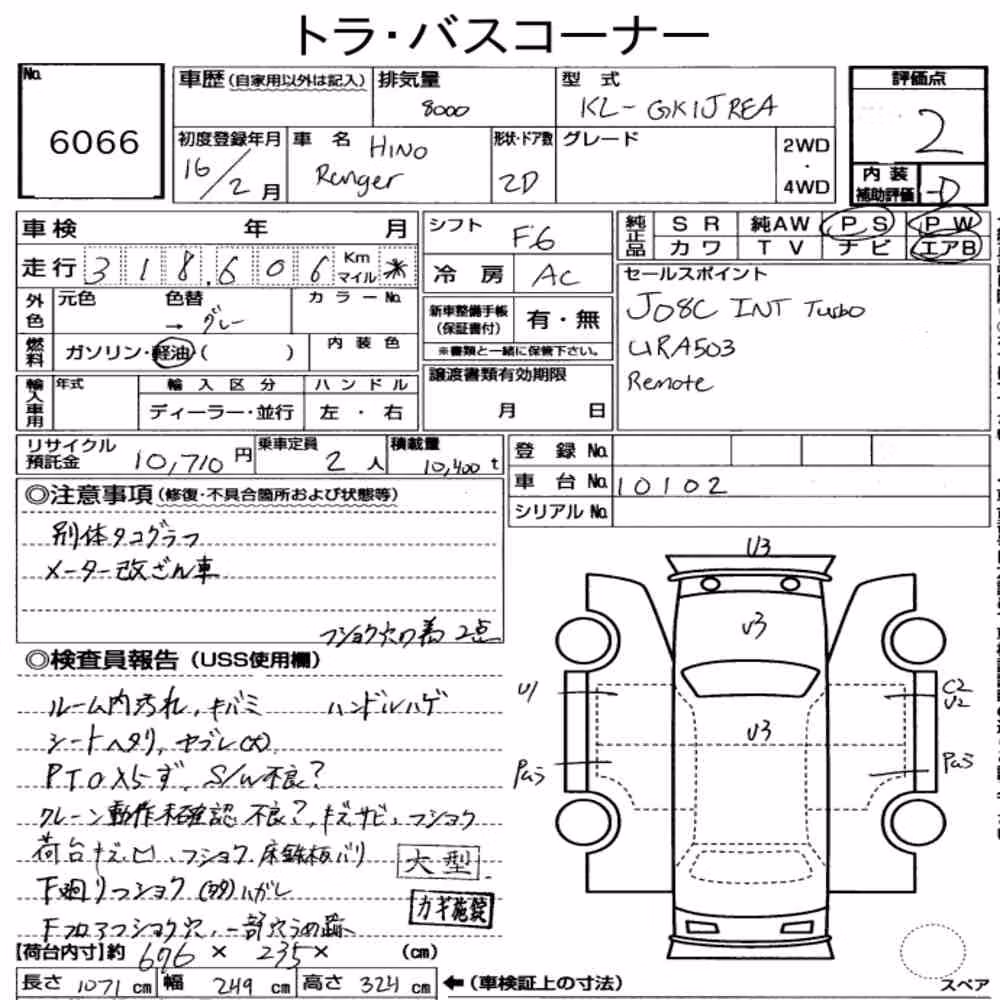 トラ・バスコーナー
No.
6066
車歴(自家用以外は記入)
排気量
8000
型式
KL-GK1JREA
評価点
2
初度登録年月
16/2月
車名
HINO
Ranger
形状・ドア数
2D
グレード
2WD
・
4WD
内装
補助評価
-D
車検 年 月
シフト
F6
純正品
SR 純AW PS PW
カワ TV ナビ エアB
走行 318,606 Km
マイル *
冷房
AC
外色
元色 色替
カラーNo.
→ グレー
新車整備手帳
(保証書付)
有・無
※書類と一緒に保管下さい。
セールスポイント
J08C INT Turbo
URA503
Remote
燃料
ガソリン・軽油・( )
内装色
輸入車用
年式
輸入区分
ハンドル
ディーラー・並行
左・右
譲渡書類有効期限
月 日
リサイクル
預託金
10,710円
乗車定員
2人
積載量
10,400t
登録No.
車台No.
10102
シリアルNo.
◎注意事項(修復・不具合箇所および状態等)
別体タコグラフ
メーター改ざん車
フショク穴の為2点
◎検査員報告(USS使用欄)
ルーム内汚れ、キバミ ハンドルハゲ
シートヘタリ、ヤブレ(大)
PTO入らず、S/W不良?
クレーン動作未確認 不良?、キズサビ、フショク
荷台キズ、凹、フショク、床鉄板バリ
大型
下廻りフショク(多)ハガレ
カギ施錠
Fフロアフショク穴、一部穴うめ跡
【荷台内寸】約 676 × 235 × (cm)
長さ 1071 cm 幅 249 cm 高さ 324 cm
←(車検証上の寸法)
U3
U3
U1
C2
U2
U3
スペア